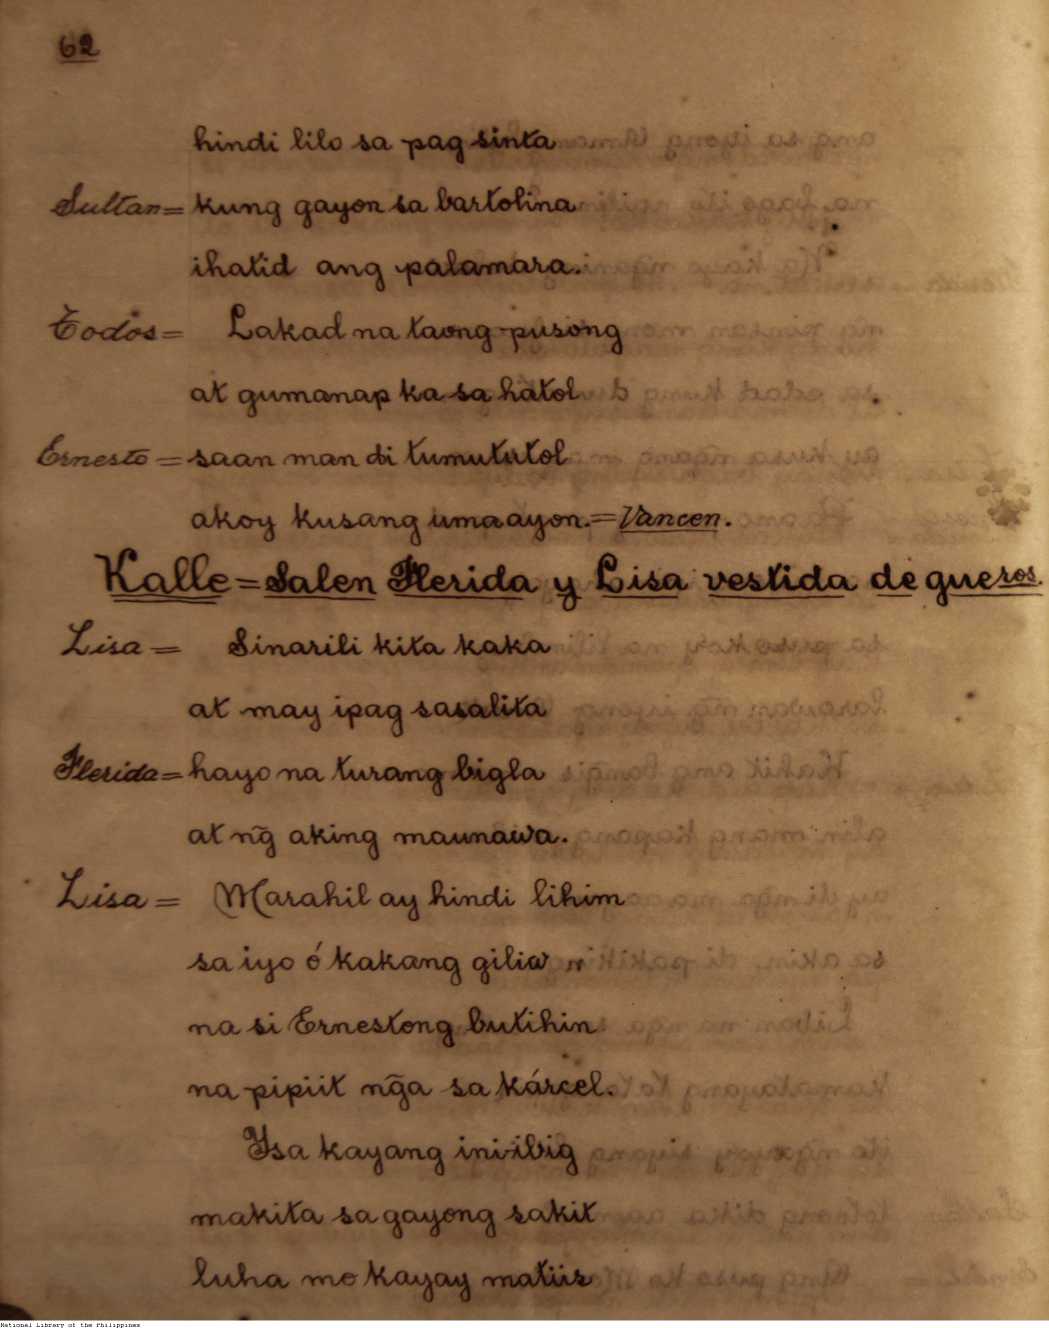 62
hindi lilo sa pag sinta
Sultan = kung gayon sa bartolina
ihatid ang palamara.
Todos = Lakad na taong pusong
at gumanap ka sa hatol
Ernesto = saan man di tumututol
akoy kusang umaayon. = Vancen.
Kalle = Salen Flerida y Lisa vestida de gueros.
Lisa = Sinarili kita kaka
at may ipag sasalita
Flerida = hayo na turang bigla
at ng̃ aking maunawa.
Lisa = Marahil ay hindi lihim
sa iyo ó kakang giliw
na si Ernestong butihin
na pipiit ng̃a sa kárcel.
Ysa kayang iniibig
makita sa gayong sakit
luha mo kayay matiis
National Library of the Philippines